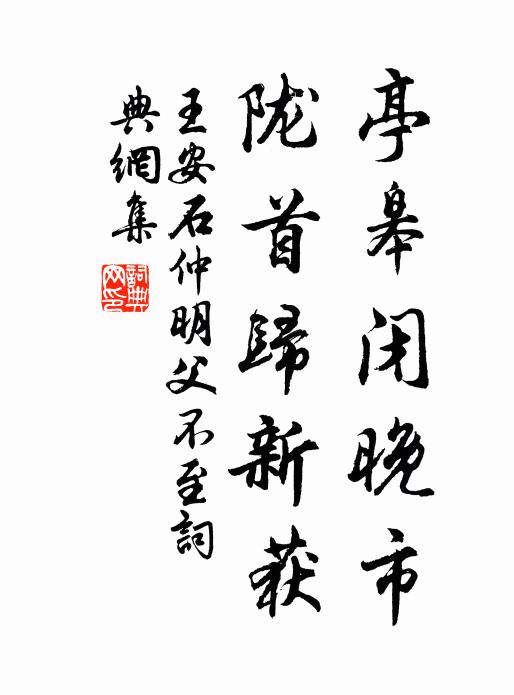 亭皋闭晚市
陇首歸新获
王安石仲明父不至詞
典網集
詞典網印